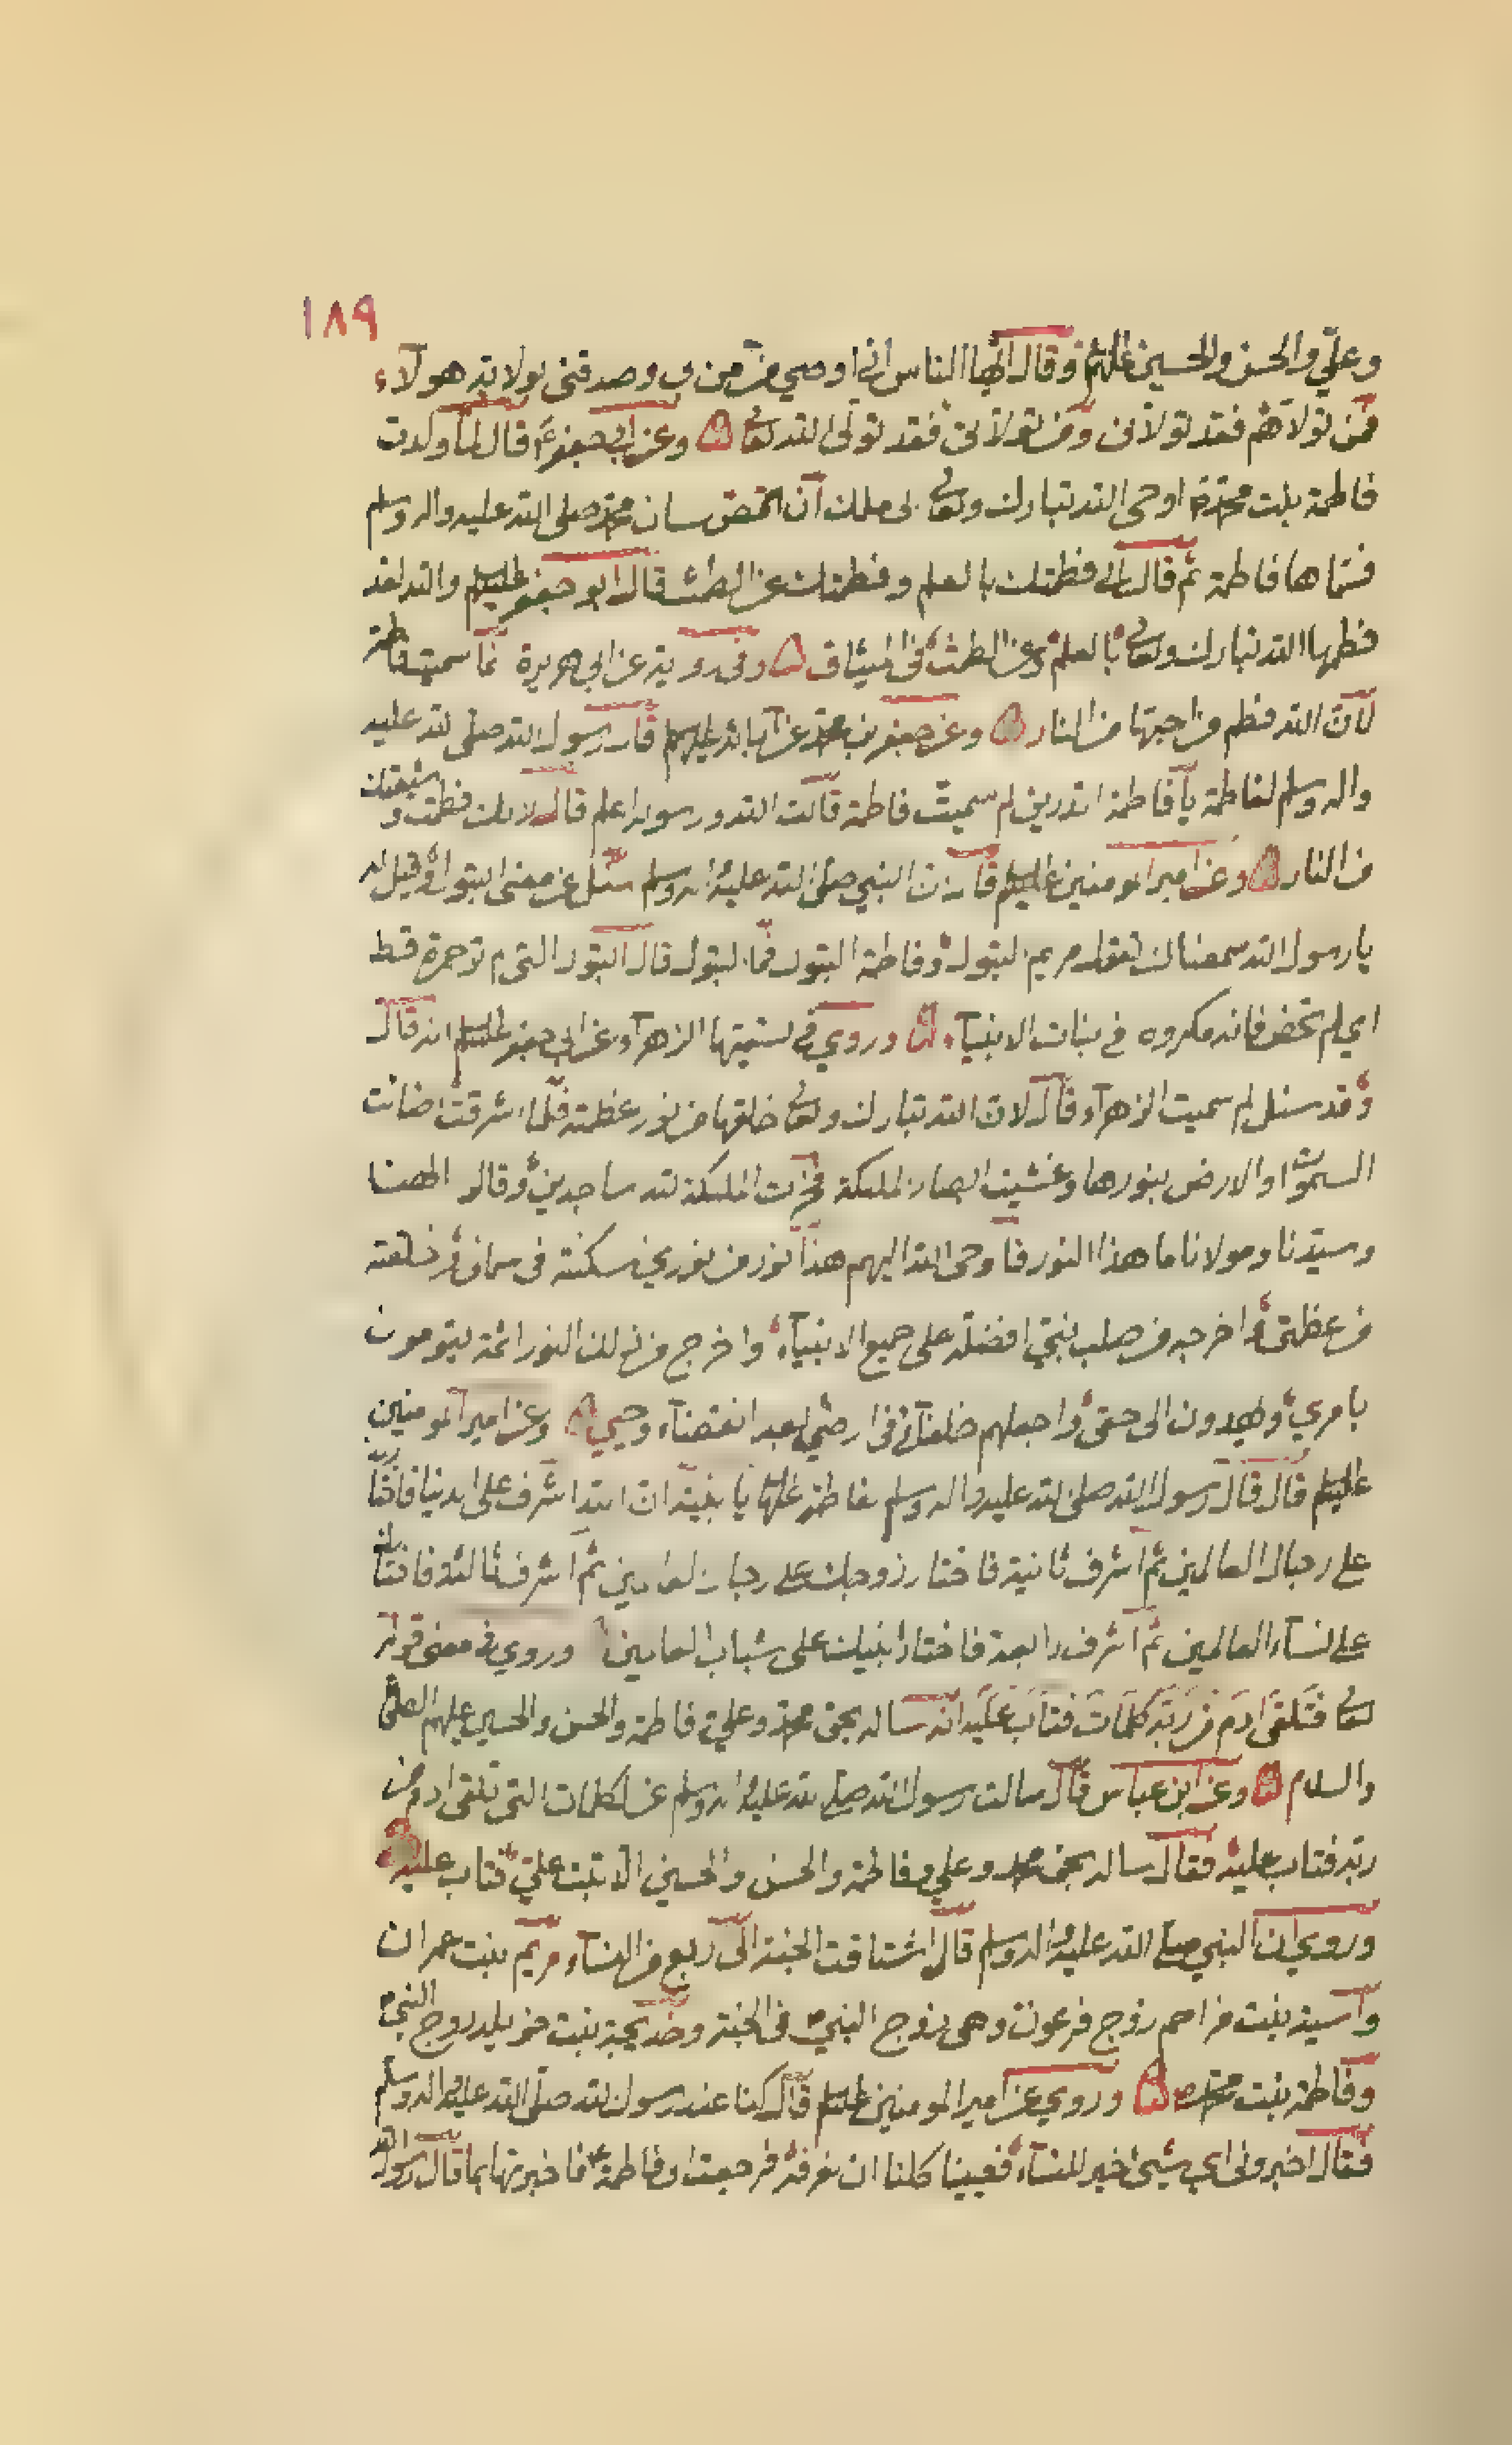 ١٨٩
وعليّ والحسن والحسين عليهم وقال ايّها الناس اني اوصي من آمن بي وصدقني بولاية هولآء
فمن تولّاهم فقد تولّاني ومن تولّاني فقد تولّى الله تعالى وعن ابي جعفر ع قال لمّا ولدت
فاطمة بنت محمد اوحى الله تبارك وتعالى الى ملك ان انطق لسان محمد صلى الله عليه واله وسلم
فسمّاها فاطمة ثم قال اني فطمتك بالعلم وفطمتك عن الطمث قال ابو جعفر عليه السلم والله لقد
فطمها الله تبارك وتعالى بالعلم وعن الطمث في الميثاق وفي رواية عن ابي هريرة انما سميت فاطمة
لانّ الله فطم من احبها من النار وعن جعفر بن محمد عن آبائه عليهم قال رسول الله صلى الله عليه
واله وسلم لفاطمة يا فاطمة اتدرين لم سميت فاطمة قالت الله ورسوله اعلم قال لانك فطمت وشيعتك
من النار وعن امير المومنين عليه السلم قال ان النبي صلى الله عليه واله وسلم سئل عن معنى البتول وقيل له
يا رسول الله سمعناك تقول مريم البتول وفاطمة البتول فما البتول قال البتول التي لم تر حمرة قط
اي لم تحض فانه مكروه في بنات الانبيآء وروي في تسميتها الزهرآء عن ابي جعفر عليه السلم انه قال
وقد سئل لم سميت الزهرآء قال لان الله تبارك وتعالى خلقها من نور عظمته فلمّا اشرقت اضائت
السموات والارض بنورها وغشيت ابصار الملئكة فخرّت الملئكة لله ساجدين وقالوا الهنا
وسيّدنا ومولانا ما هذا النور فاوحى الله اليهم هذا نور من نوري اسكنته في سمائي خلقته
من عظمتي اخرجه من صلب نبيّ افضله على جميع الانبيآء واخرج من ذلك النور ائمة يقومون
بامري ويهدون الى حقي واجعلهم خلفائي في ارضي بعد انقضآء وحيي وعن امير المومنين
عليه السلم قال قال رسول الله صلى الله عليه واله وسلم لفاطمة عليها يا بنية ان الله اشرف على الدنيا فاختارني
على رجال العالمين ثم اشرف ثانية فاختار زوجك على رجال العالمين ثم اشرف ثالثة فاختارك
على نسآء العالمين ثم اشرف رابعة فاختار ابنيك على شباب العالمين وروي في معنى قوله
تعالى فَتَلقى ادَم من رَبّه كلمَات فتابَ عَلَيه انّه ساله بحق محمد وعلي وفاطمة والحسن والحسين عليهم الصلوة
والسلام وعن ابن عباس قال سالت رسول الله صلى الله عليه واله وسلم عن الكلمات التي تلقى ادم من
ربه فتاب عليه فقال ساله بحق محمد وعلي وفاطمة والحسن والحسين الا تبت عليّ فتاب عليه
وروي ان النبي صلى الله عليه واله وسلم قال اشتاقت الجنة الى اربع من النسآء مريم بنت عمران
وآسية بنت مزاحم زوج فرعون وهي زوج النبي في الجنة وخديجة بنت خويلد زوج النبي
وفاطمة بنت محمد وروي عن امير المومنين عليه السلم قال كنا عند رسول الله صلى الله عليه واله وسلم
فقال اخبروني اي شيئ خير للنسآء فعيينا كلنا ان نعرفه فرجعت الى فاطمة ع فاخبرتها بما قال رسول الله